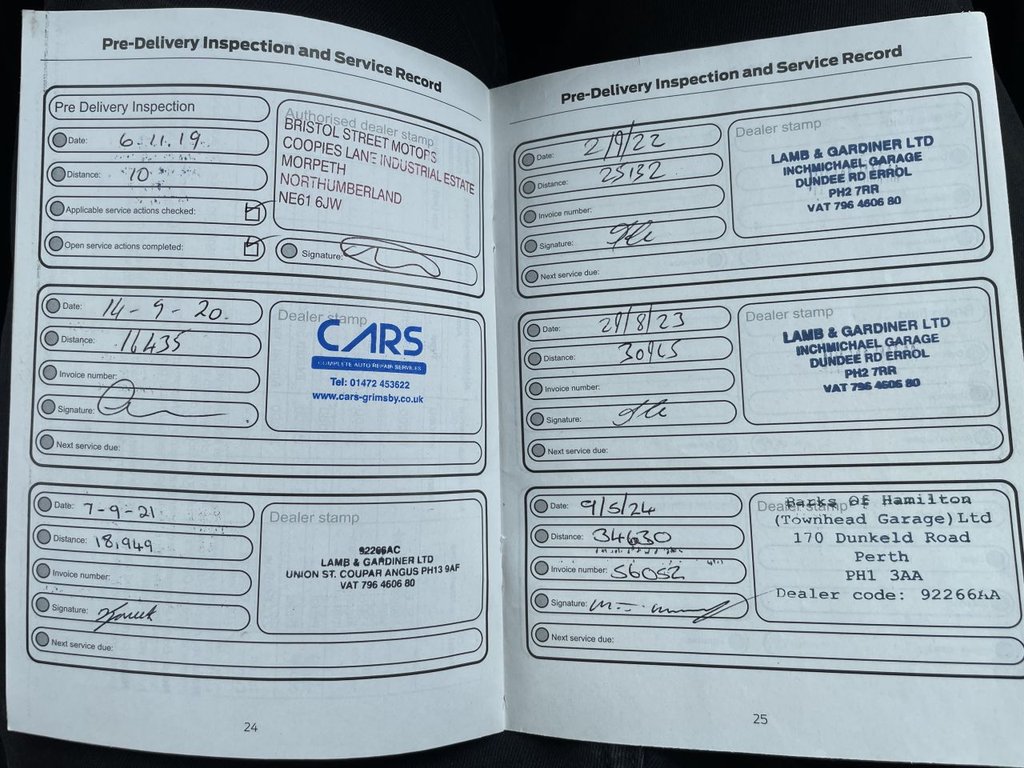 Pre-Delivery Inspection and Service Record
Pre Delivery Inspection
Date: 6.11.19.
Distance: 10
Applicable service actions checked:
Open service actions completed:
Authorised dealer stamp
BRISTOL STREET MOTORS
COOPIES LANE INDUSTRIAL ESTATE
MORPETH
NORTHUMBERLAND
NE61 6JW
Signature:
Date: 14-9-20.
Distance: 16435
Invoice number:
Signature:
Next service due:
Dealer stamp
CARS
COMPLETE AUTO REPAIR SERVICES
Tel: 01472 453622
www.cars-grimsby.co.uk
Date: 7-9-21
Distance: 18,949
Invoice number:
Signature:
Next service due:
Dealer stamp
92266AC
LAMB & GARDINER LTD
UNION ST. COUPAR ANGUS PH13 9AF
VAT 796 4606 80
24
Pre-Delivery Inspection and Service Record
Date: 2/9/22
Distance: 25132
Invoice number:
Signature:
Next service due:
Dealer stamp
LAMB & GARDINER LTD
INCHMICHAEL GARAGE
DUNDEE RD ERROL
PH2 7RR
VAT 796 4606 80
Date: 29/8/23
Distance:
Invoice number:
Signature:
Next service due:
Dealer stamp
LAMB & GARDINER LTD
INCHMICHAEL GARAGE
DUNDEE RD ERROL
PH2 7RR
VAT 796 4606 80
Date: 9/5/24
Distance: 34630
Invoice number: 56052
Signature:
Next service due:
Dealer stamp
Barks Of Hamilton
(Townhead Garage) Ltd
170 Dunkeld Road
Perth
PH1 3AA
Dealer code: 92266AA
25